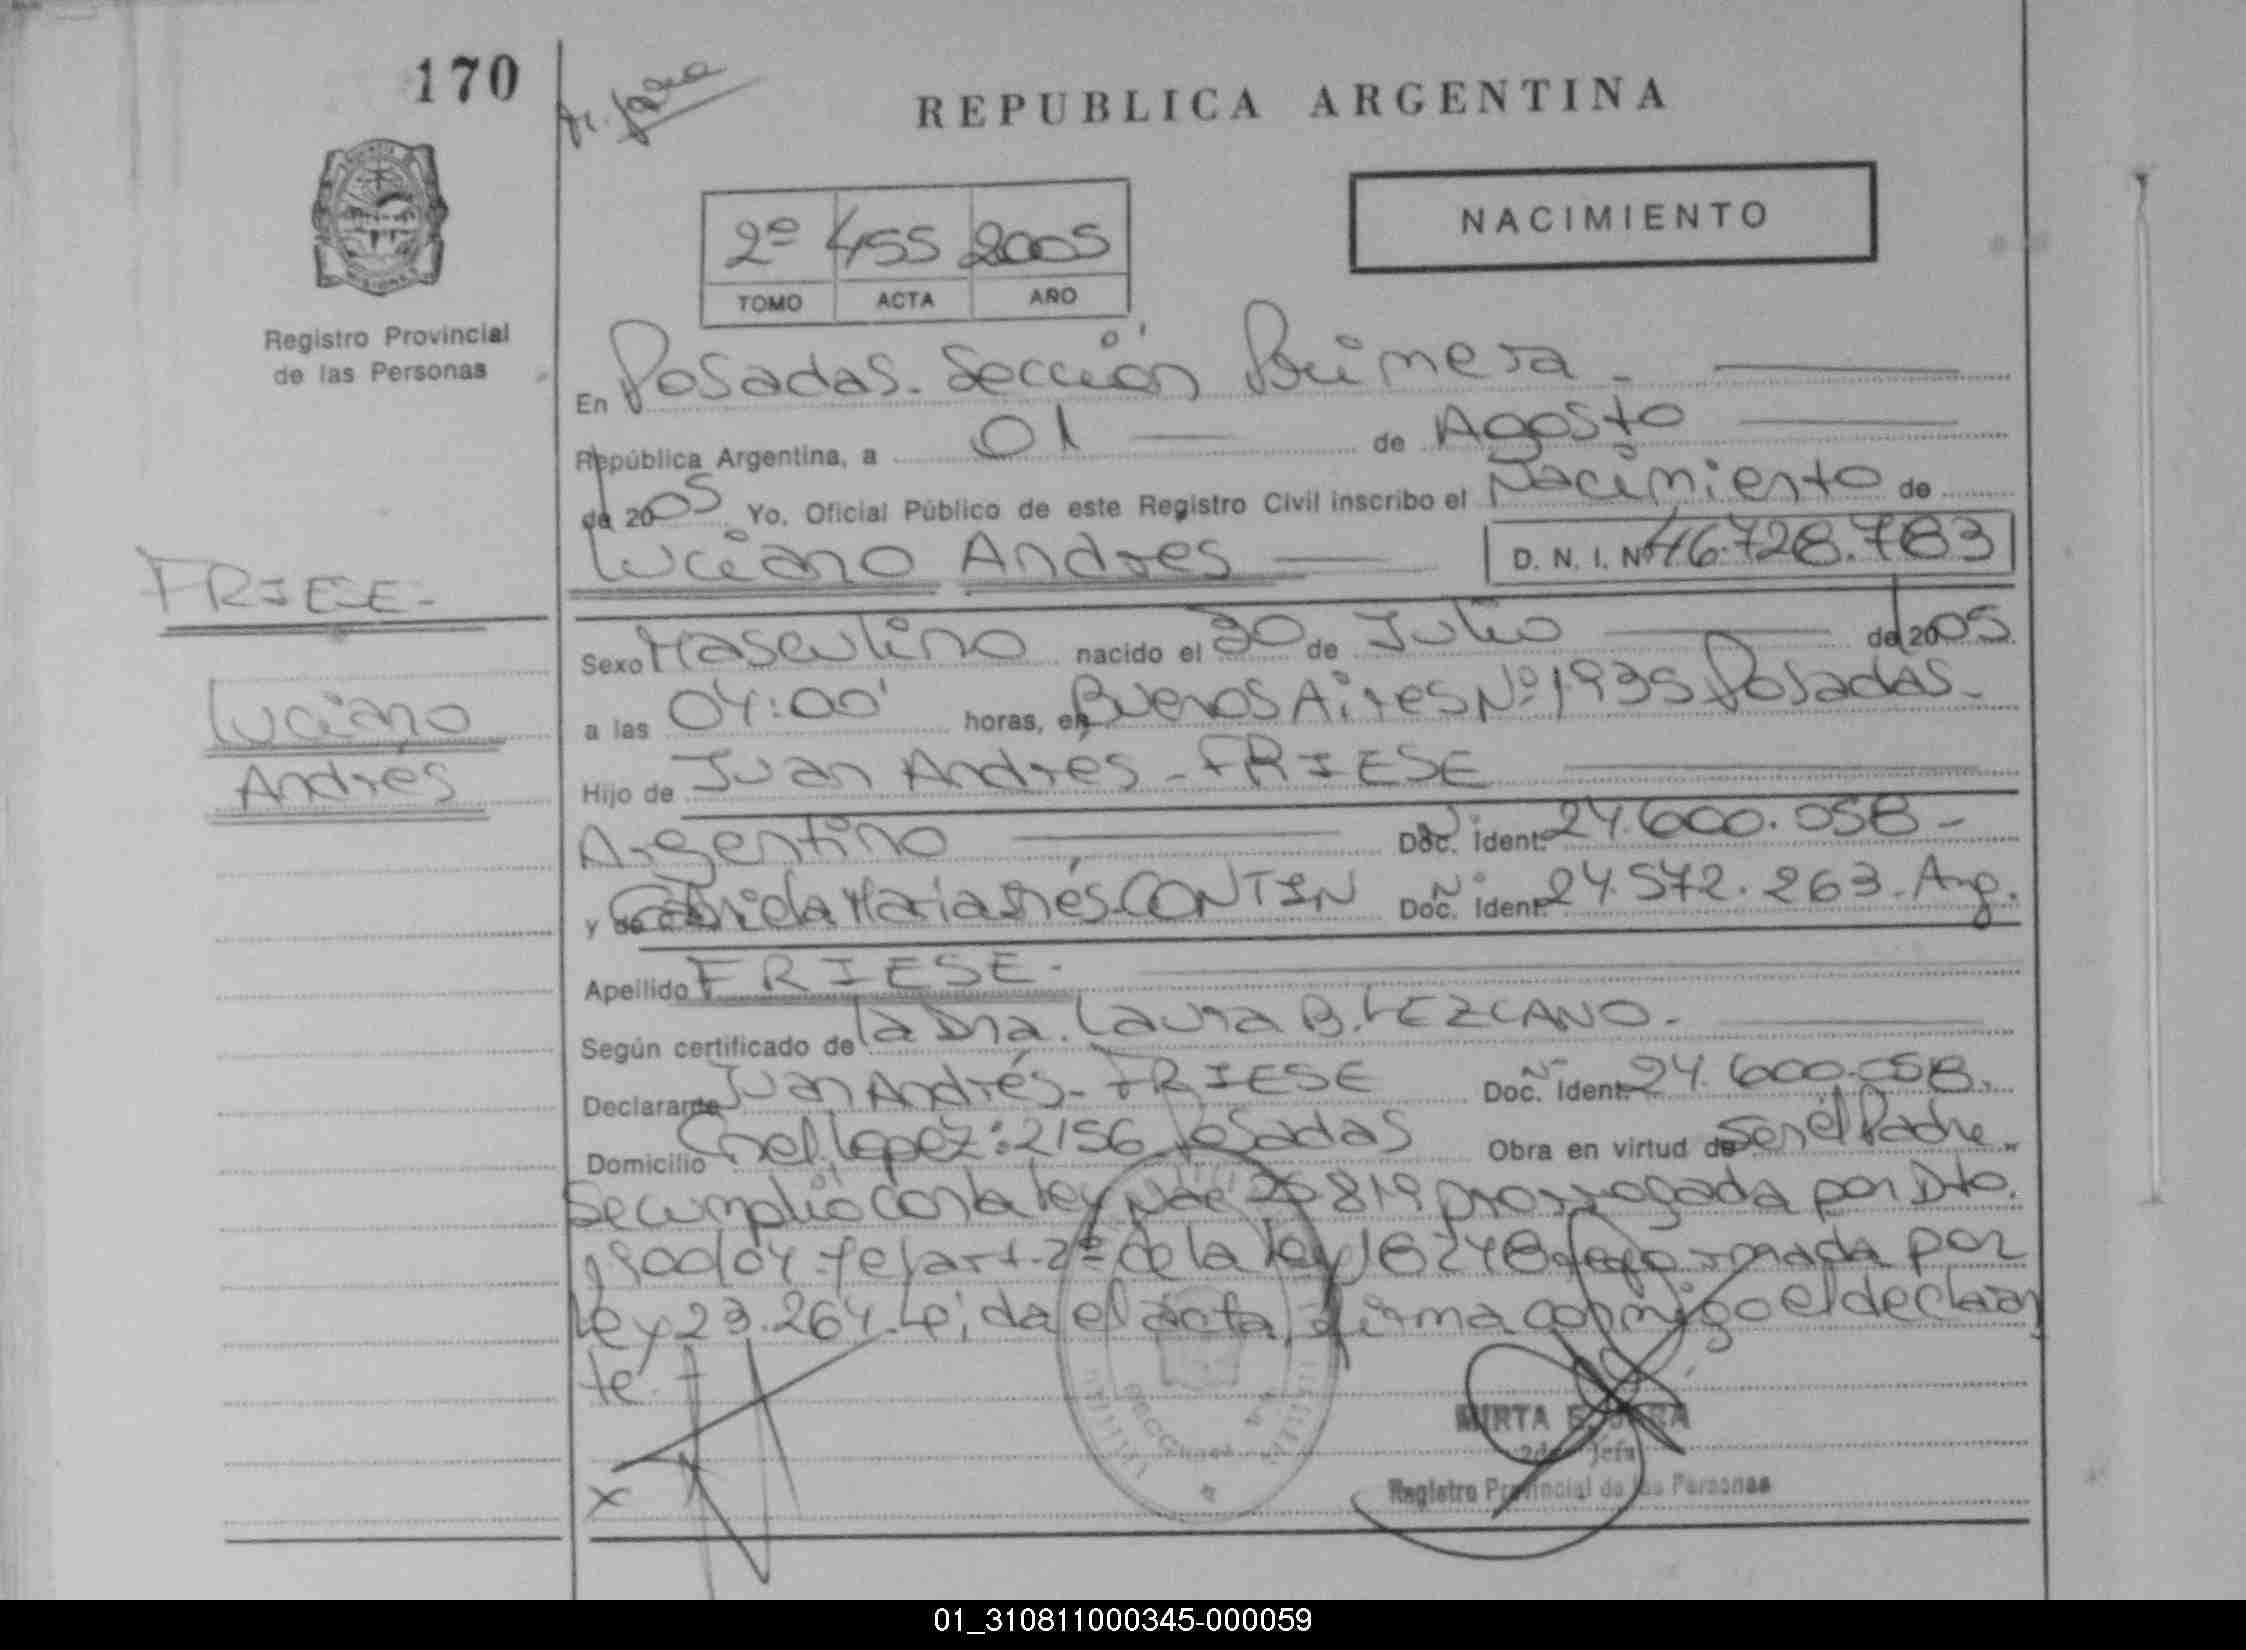 170
REPUBLICA ARGENTINA
NACIMIENTO
2º 455 2005
TOMO ACTA AÑO
Registro Provincial
de las Personas
En Posadas. Sección Primera.
República Argentina, a 01 de Agosto
de 2005 Yo, Oficial Público de este Registro Civil inscribo el Nacimiento de
Luciano Andres D. N. I. Nº 46.728.783
FRIESE-
Luciano
Andrés
Sexo Masculino nacido el 30 de Julio de 2005
a las 04:00' horas, en Buenos Aires Nº 1935 Posadas-
Hijo de Juan Andrés - FRIESE
Argentino Doc. Ident. 24.600.058-
y de Gabriela Maria Inés CONTIN Doc. Ident. 24.572.263. Arg.
Apellido FRIESE-
Según certificado de la Dra. Laura B. LEZCANO.
Declarante Juan Andrés - FRIESE Doc. Ident. 24.600.058.
Domicilio Cnel. Lopez: 2156 Posadas Obra en virtud de ser el Padre
Se cumplió con la ley 25819 prorrogada por Dto.
1900/04 y el art. 2º de la ley 18248 por
ley 23.264. Leida el acta, firma conmigo el declaran
te.
x
MIRTA
Jefa
Registro Provincial de las Personas
01_310811000345-000059